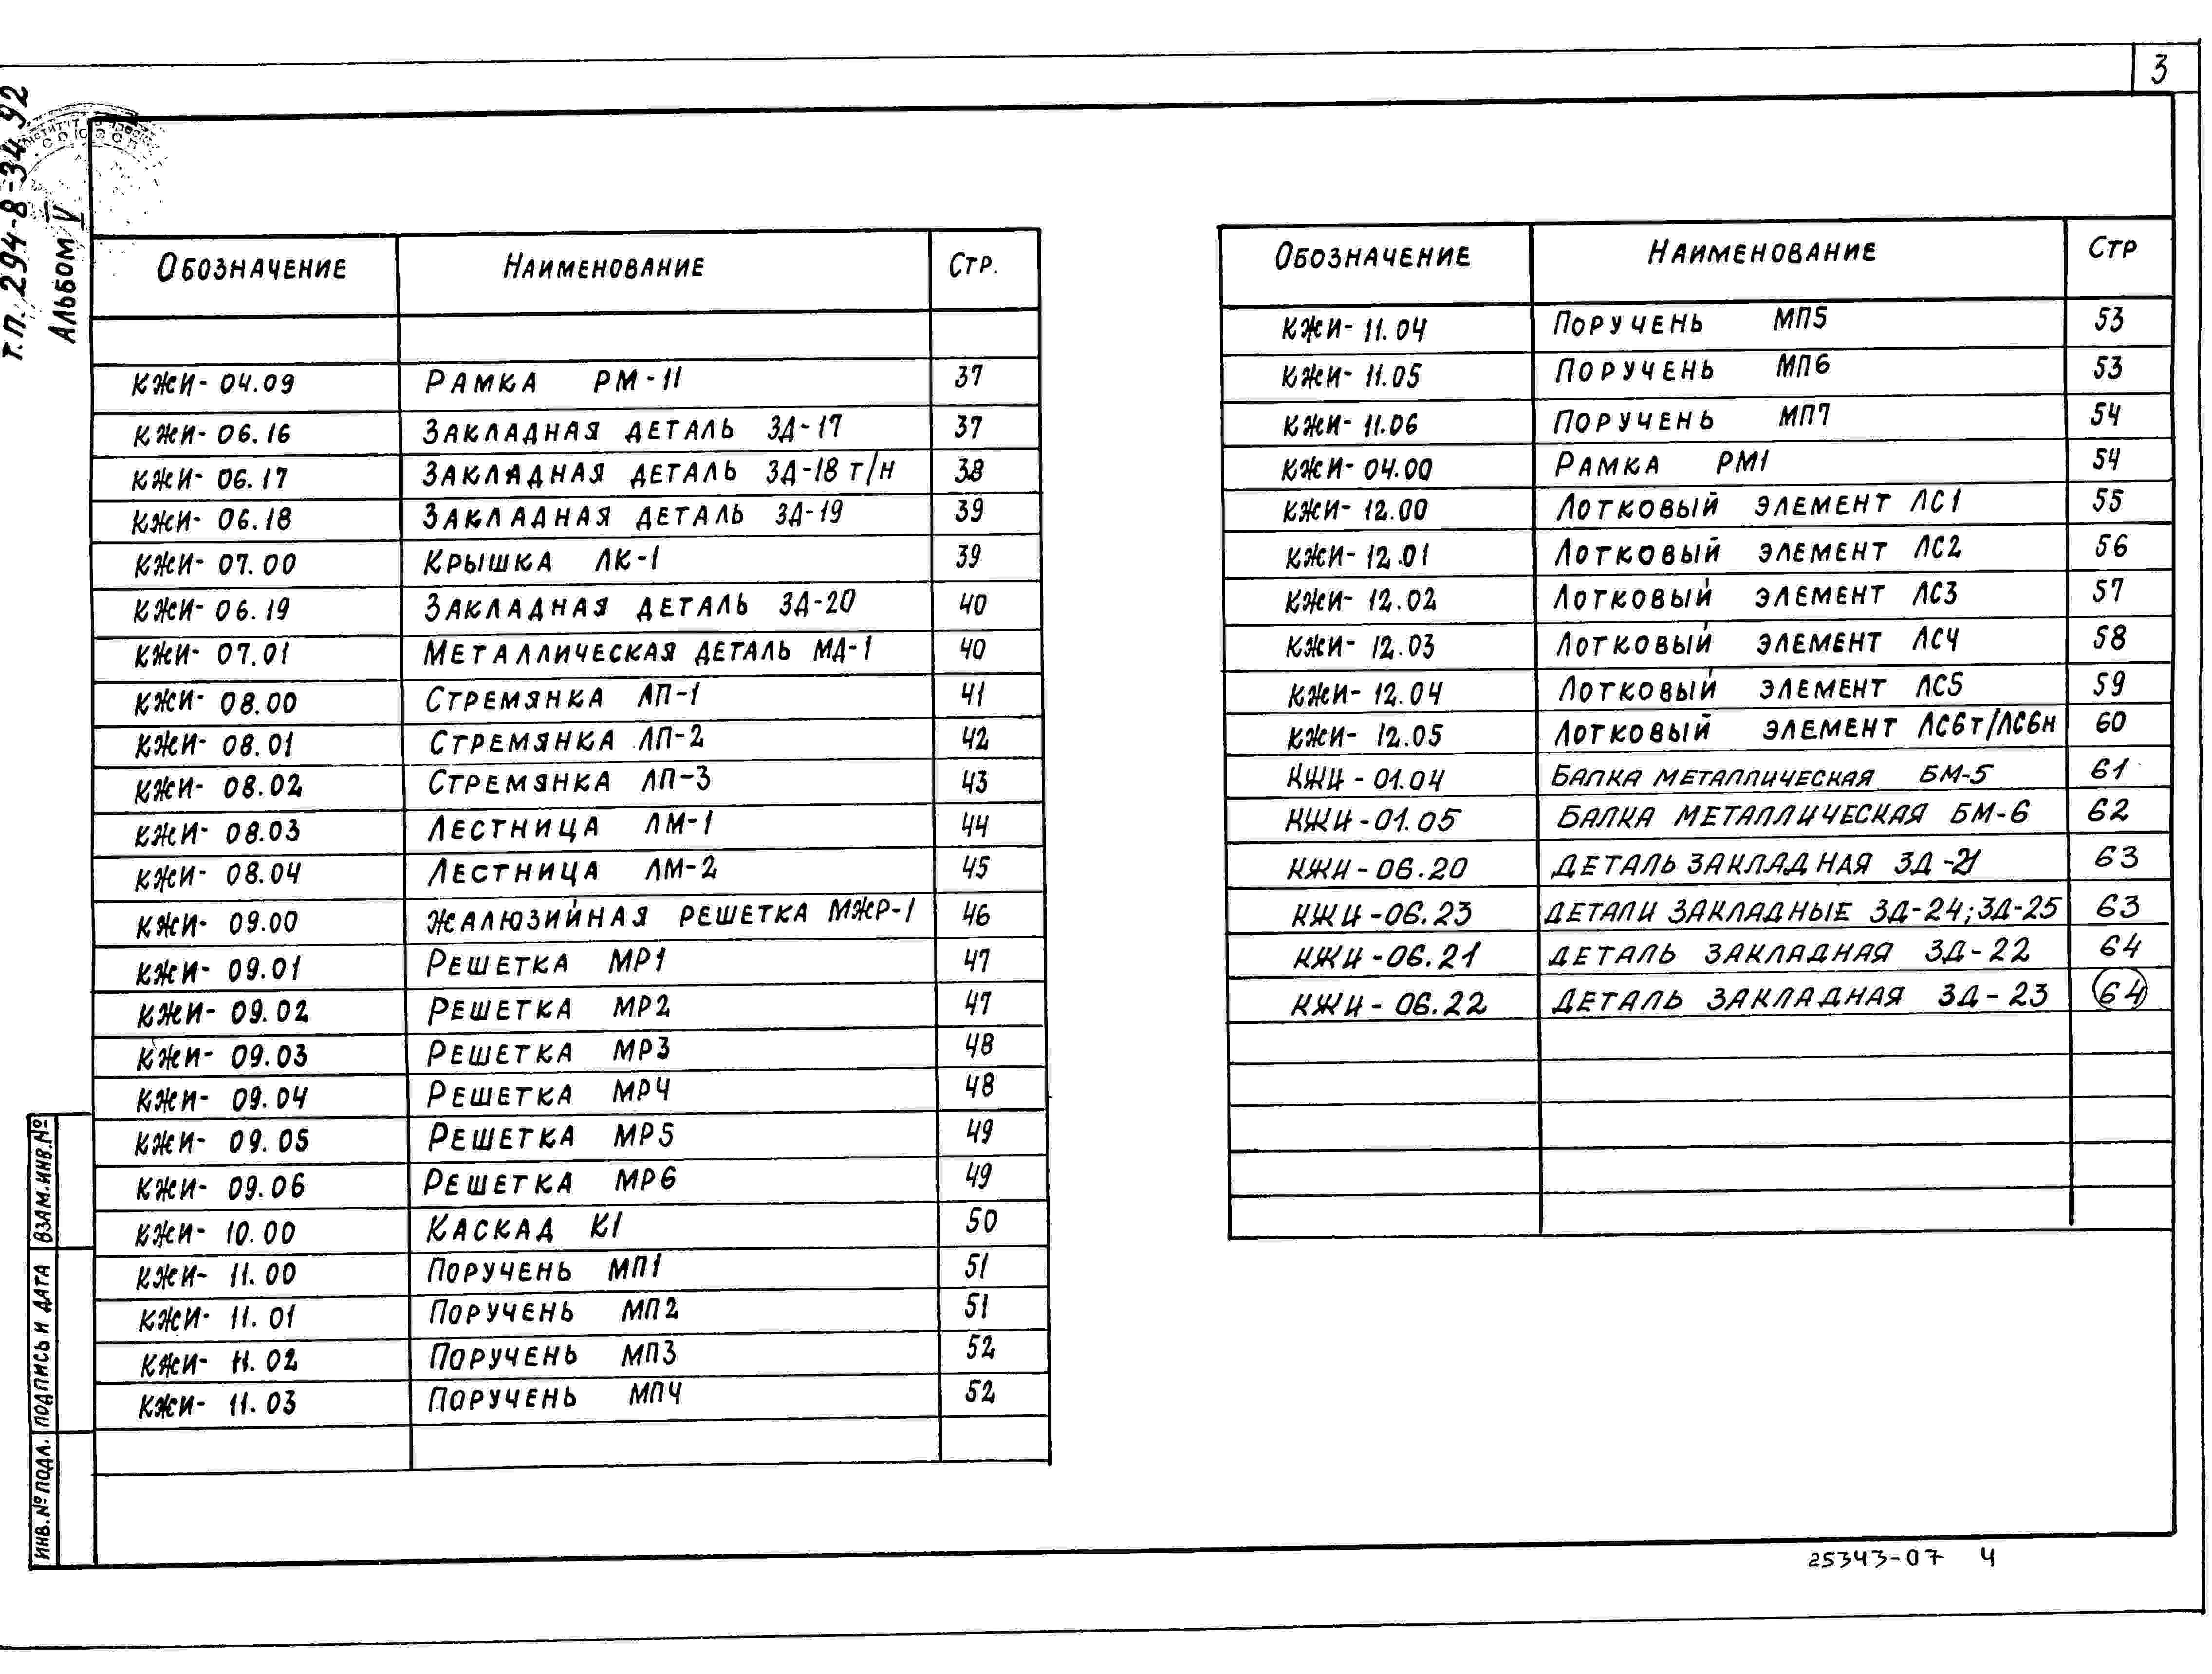 3
Т.П. 294-8-34.92
Альбом V
Обозначение Наименование Стр.
КЖИ- 04.09 Рамка РМ-11 37
КЖИ- 06.16 Закладная деталь ЗД-17 37
КЖИ- 06.17 Закладная деталь ЗД-18 т/н 38
КЖИ- 06.18 Закладная деталь ЗД-19 39
КЖИ- 07.00 Крышка ЛК-1 39
КЖИ- 06.19 Закладная деталь ЗД-20 40
КЖИ- 07.01 Металлическая деталь МД-1 40
КЖИ- 08.00 Стремянка ЛП-1 41
КЖИ- 08.01 Стремянка ЛП-2 42
КЖИ- 08.02 Стремянка ЛП-3 43
КЖИ- 08.03 Лестница ЛМ-1 44
КЖИ- 08.04 Лестница ЛМ-2 45
КЖИ- 09.00 Жалюзийная решетка МЖР-1 46
КЖИ- 09.01 Решетка МР1 47
КЖИ- 09.02 Решетка МР2 47
КЖИ- 09.03 Решетка МР3 48
КЖИ- 09.04 Решетка МР4 48
КЖИ- 09.05 Решетка МР5 49
КЖИ- 09.06 Решетка МР6 49
КЖИ- 10.00 Каскад К1 50
КЖИ- 11.00 Поручень МП1 51
КЖИ- 11.01 Поручень МП2 51
КЖИ- 11.02 Поручень МП3 52
КЖИ- 11.03 Поручень МП4 52
Обозначение Наименование Стр
КЖИ- 11.04 Поручень МП5 53
КЖИ- 11.05 Поручень МП6 53
КЖИ- 11.06 Поручень МП7 54
КЖИ- 04.00 Рамка РМ1 54
КЖИ- 12.00 Лотковый элемент ЛС1 55
КЖИ- 12.01 Лотковый элемент ЛС2 56
КЖИ- 12.02 Лотковый элемент ЛС3 57
КЖИ- 12.03 Лотковый элемент ЛС4 58
КЖИ- 12.04 Лотковый элемент ЛС5 59
КЖИ- 12.05 Лотковый элемент ЛС6т/ЛС6н 60
КЖИ - 01.04 Балка металлическая БМ-5 61
КЖИ -01.05 Балка металлическая БМ-6 62
КЖИ - 06.20 Деталь закладная ЗД-21 63
КЖИ -06.23 Детали закладные ЗД-24; ЗД-25 63
КЖИ -06.21 Деталь закладная ЗД-22 64
КЖИ - 06.22 Деталь закладная ЗД-23 64
Взам. инв. №
Подпись и дата
Инв. № подл.
25343-07 4